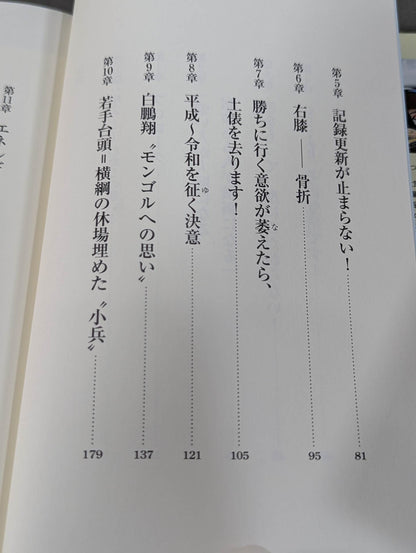 第5章 記録更新が止まらない！ 81
第6章 右膝――骨折 95
第7章 勝ちに行く意欲が萎えたら、
土俵を去ります！ 105
第8章 平成〜令和を征く決意 121
第9章 白鵬翔〝モンゴルへの思い〟 137
第10章 若手台頭＝横綱の休場埋めた〝小兵〟 179
第11章